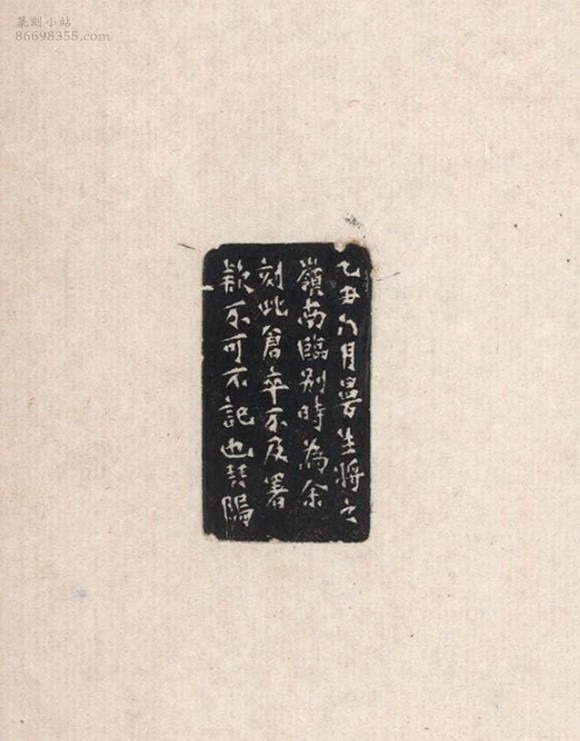 篆刻小站
86698355.com
乙丑八月曼生將之
嶺南臨別時為余
刻此倉卒不及署
款不可不記也琴隖